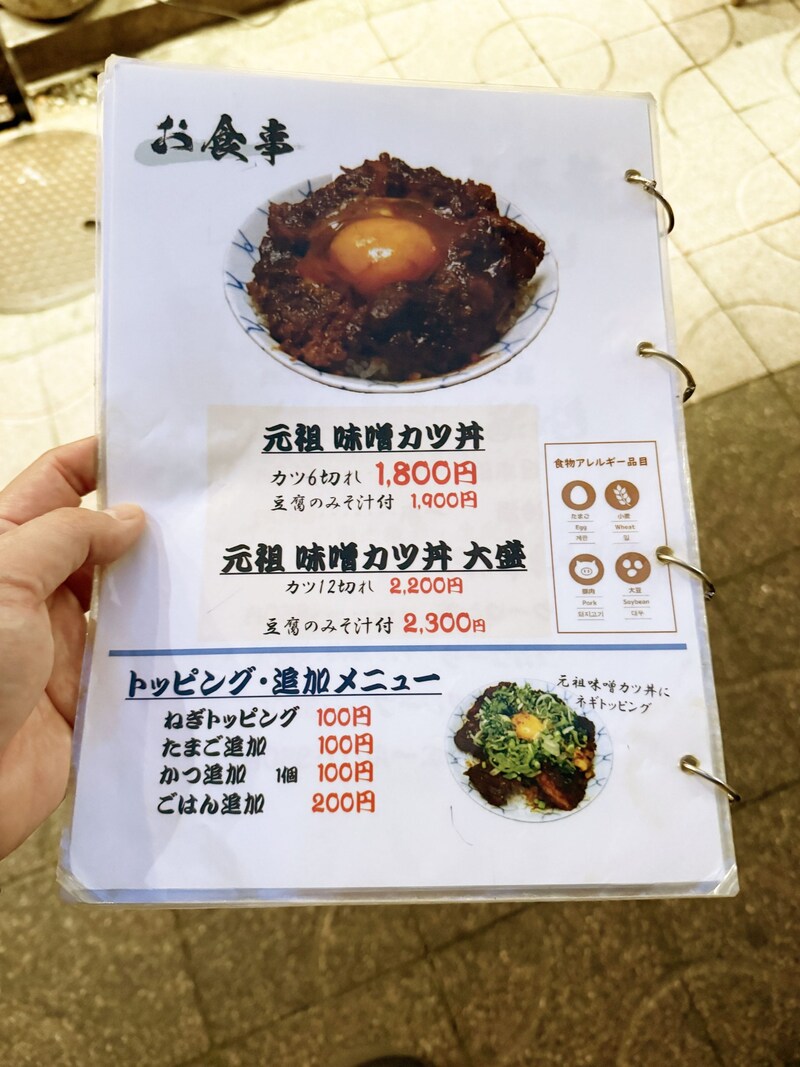 お食事
元祖 味噌カツ丼
カツ6切れ 1,800円
豆腐のみそ汁付 1,900円
元祖 味噌カツ丼 大盛
カツ12切れ 2,200円
豆腐のみそ汁付 2,300円
食物アレルギー品目
たまご 小麦
Egg Wheat
계란 밀
豚肉 大豆
Pork Soybean
돼지고기 대두
トッピング・追加メニュー
ねぎトッピング 100円
たまご追加 100円
かつ追加 1個 100円
ごはん追加 200円
元祖味噌カツ丼に
ネギトッピング